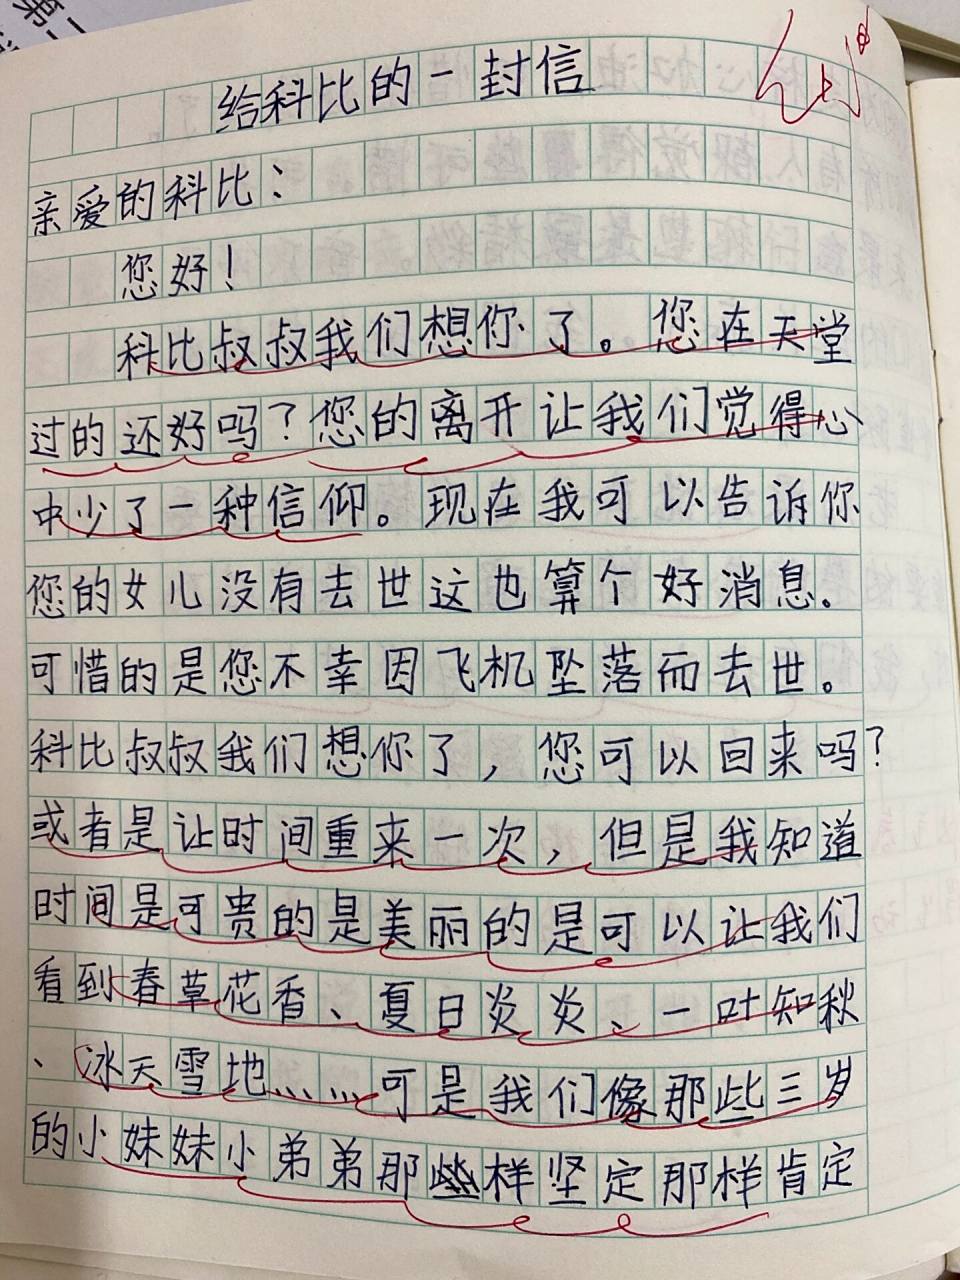 给科比的一封信
亲爱的科比：
您好！
科比叔叔我们想你了。您在天堂
过的还好吗？您的离开让我们觉得心
中少了一种信仰。现在我可以告诉你
您的女儿没有去世这也算个好消息.
可惜的是您不幸因飞机坠落而去世。
科比叔叔我们想你了，您可以回来吗？
或者是让时间重来一次，但是我知道
时间是可贵的是美丽的是可以让我们
看到春草花香、夏日炎炎、一叶知秋
、冰天雪地……可是我们像那些三岁
的小妹妹小弟弟那样坚定那样肯定